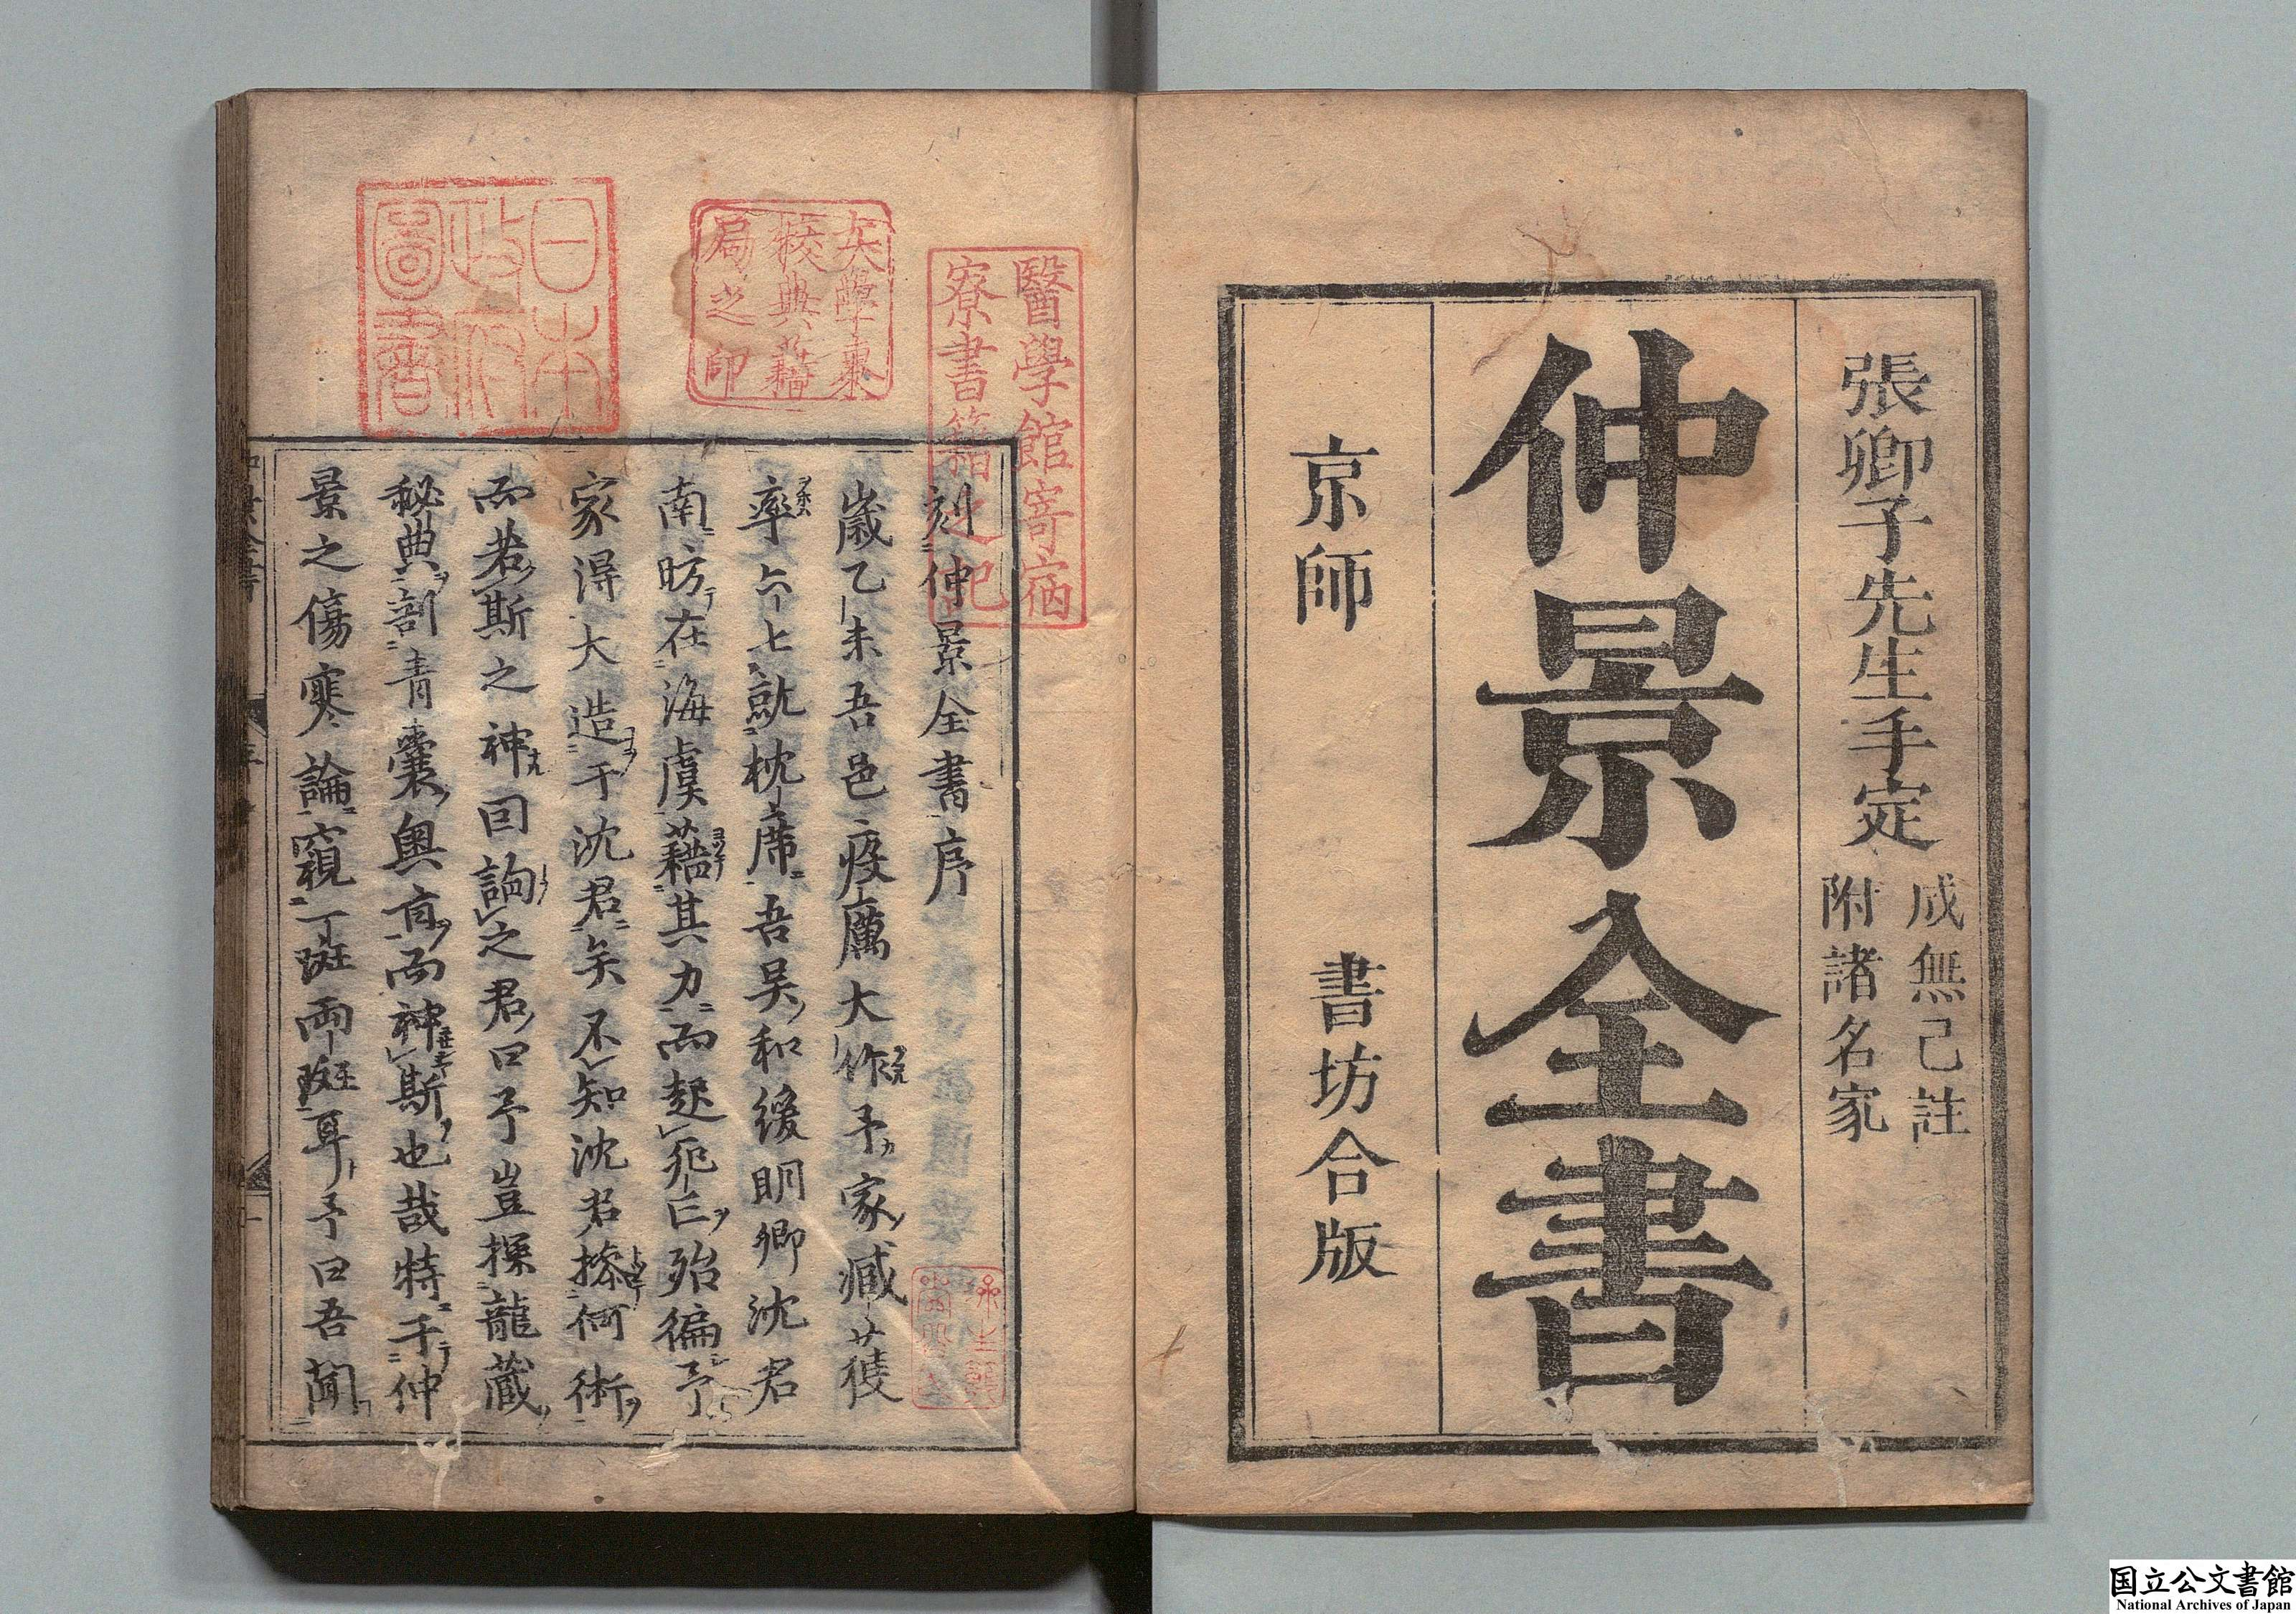 張卿子先生手定
成無己註
附諸名家
仲景全書
京師 書坊合版
醫學館寄宿
寮書籍之記
大學東
校典籍
局之印
日本
政府
圖書
刻仲景全書序
歲乙未吾邑疫厲大作予家臧獲
率六七就枕席吾吳和緩明卿沈君
南昉在海虞藉其力而起死亡殆徧予
家得大造于沈君矣不知沈君操何術
而若斯之神因詢之君曰予豈探龍藏
秘典剖青囊奧旨而神斯也哉特于仲
景之傷寒論窺一斑兩斑耳予曰吾聞
国立公文書館
National Archives of Japan